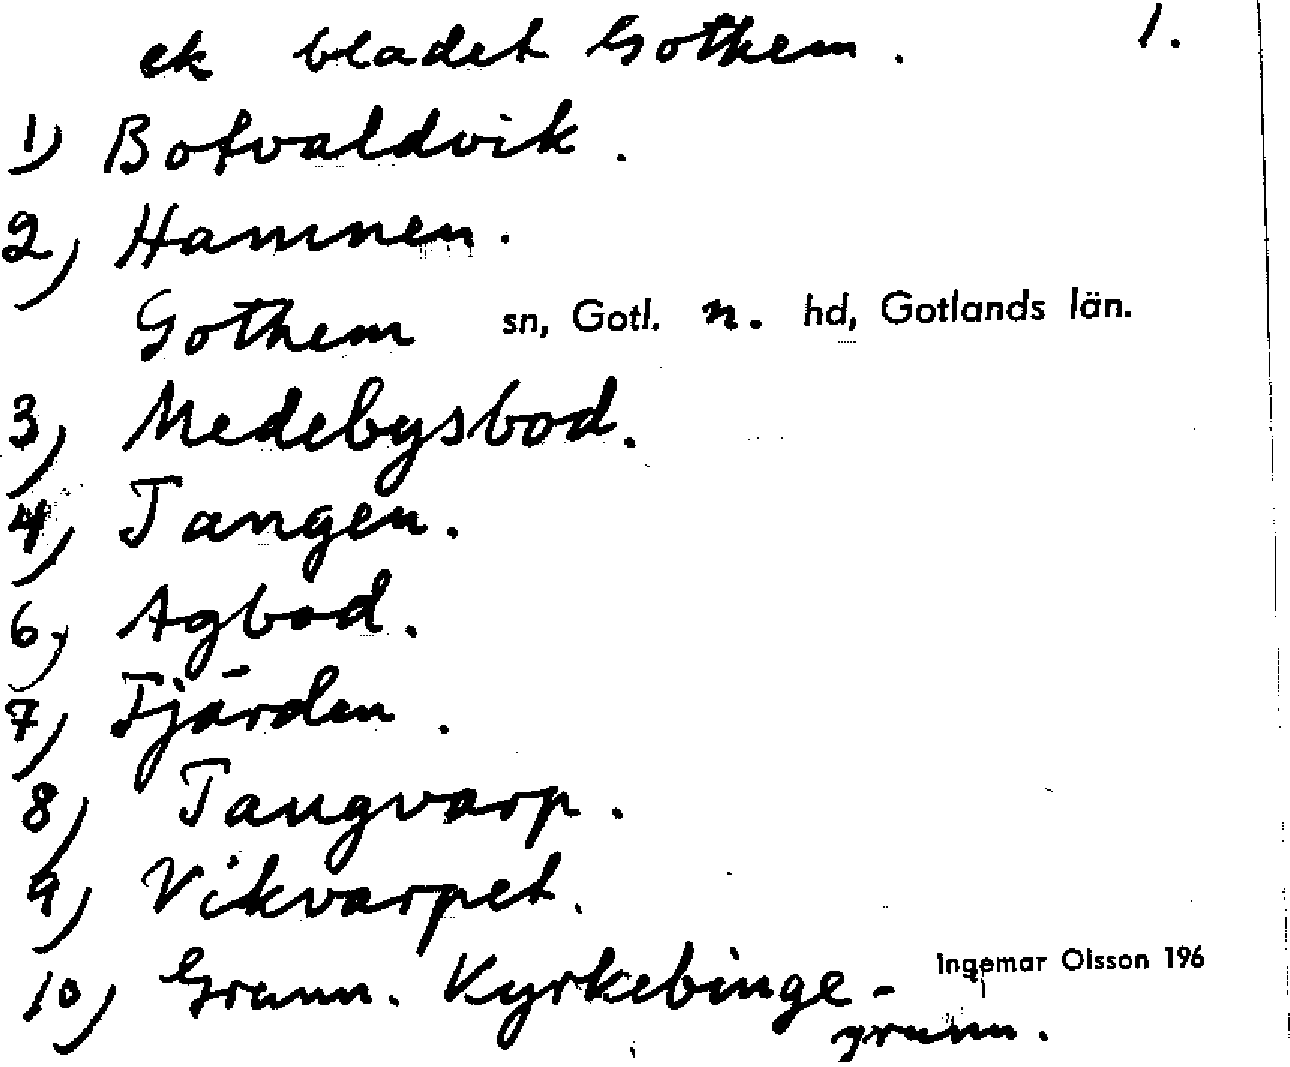 ek bladet Gothem. 1.
1) Botvaldvik.
2) Hamnen.
Gothem sn, Gotl. n. hd, Gotlands län.
3) Medebysbod.
4) Tangen.
6) Agbod.
7) Fjärden.
8) Tangvarp.
9) Vikvarpet.
10) Grunn. Kyrkebinge-
grunn.
Ingemar Olsson 196